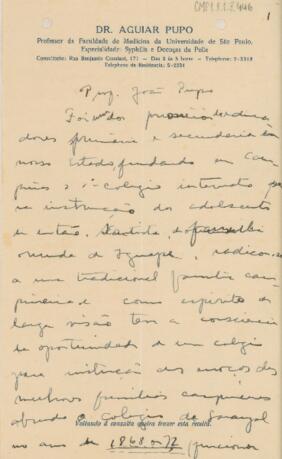 CMP1.1.3.446
1
DR. AGUIAR PUPO
Professor da Faculdade de Medicina da Universidade de São Paulo.
Especialidade: Syphilis e Doenças da Pelle
Consultorio: Rua Benjamin Constant, 171 - Das 3 ás 5 horas - Telephone: 2-3318
Telephone da Residencia: 5-2331
Prof. João Pupo
Foi um dos
dores primaria e secundaria em
nosso Estado, fundando em Cam
pinas o 1º colegio internato pa
ra instrucção dos adolescentes
de então.
oriunda de Iguape, radicou-se
a uma tradicional familia cam
pineira e como espirito de
larga visão tem a consciencia
da oportunidade de um colegio
para instrução dos moços das
melhores familias campineiras
abrindo o colegio do
Voltando á consulta queira trazer esta receita.
no anos de 1868 a 72 (funcionou